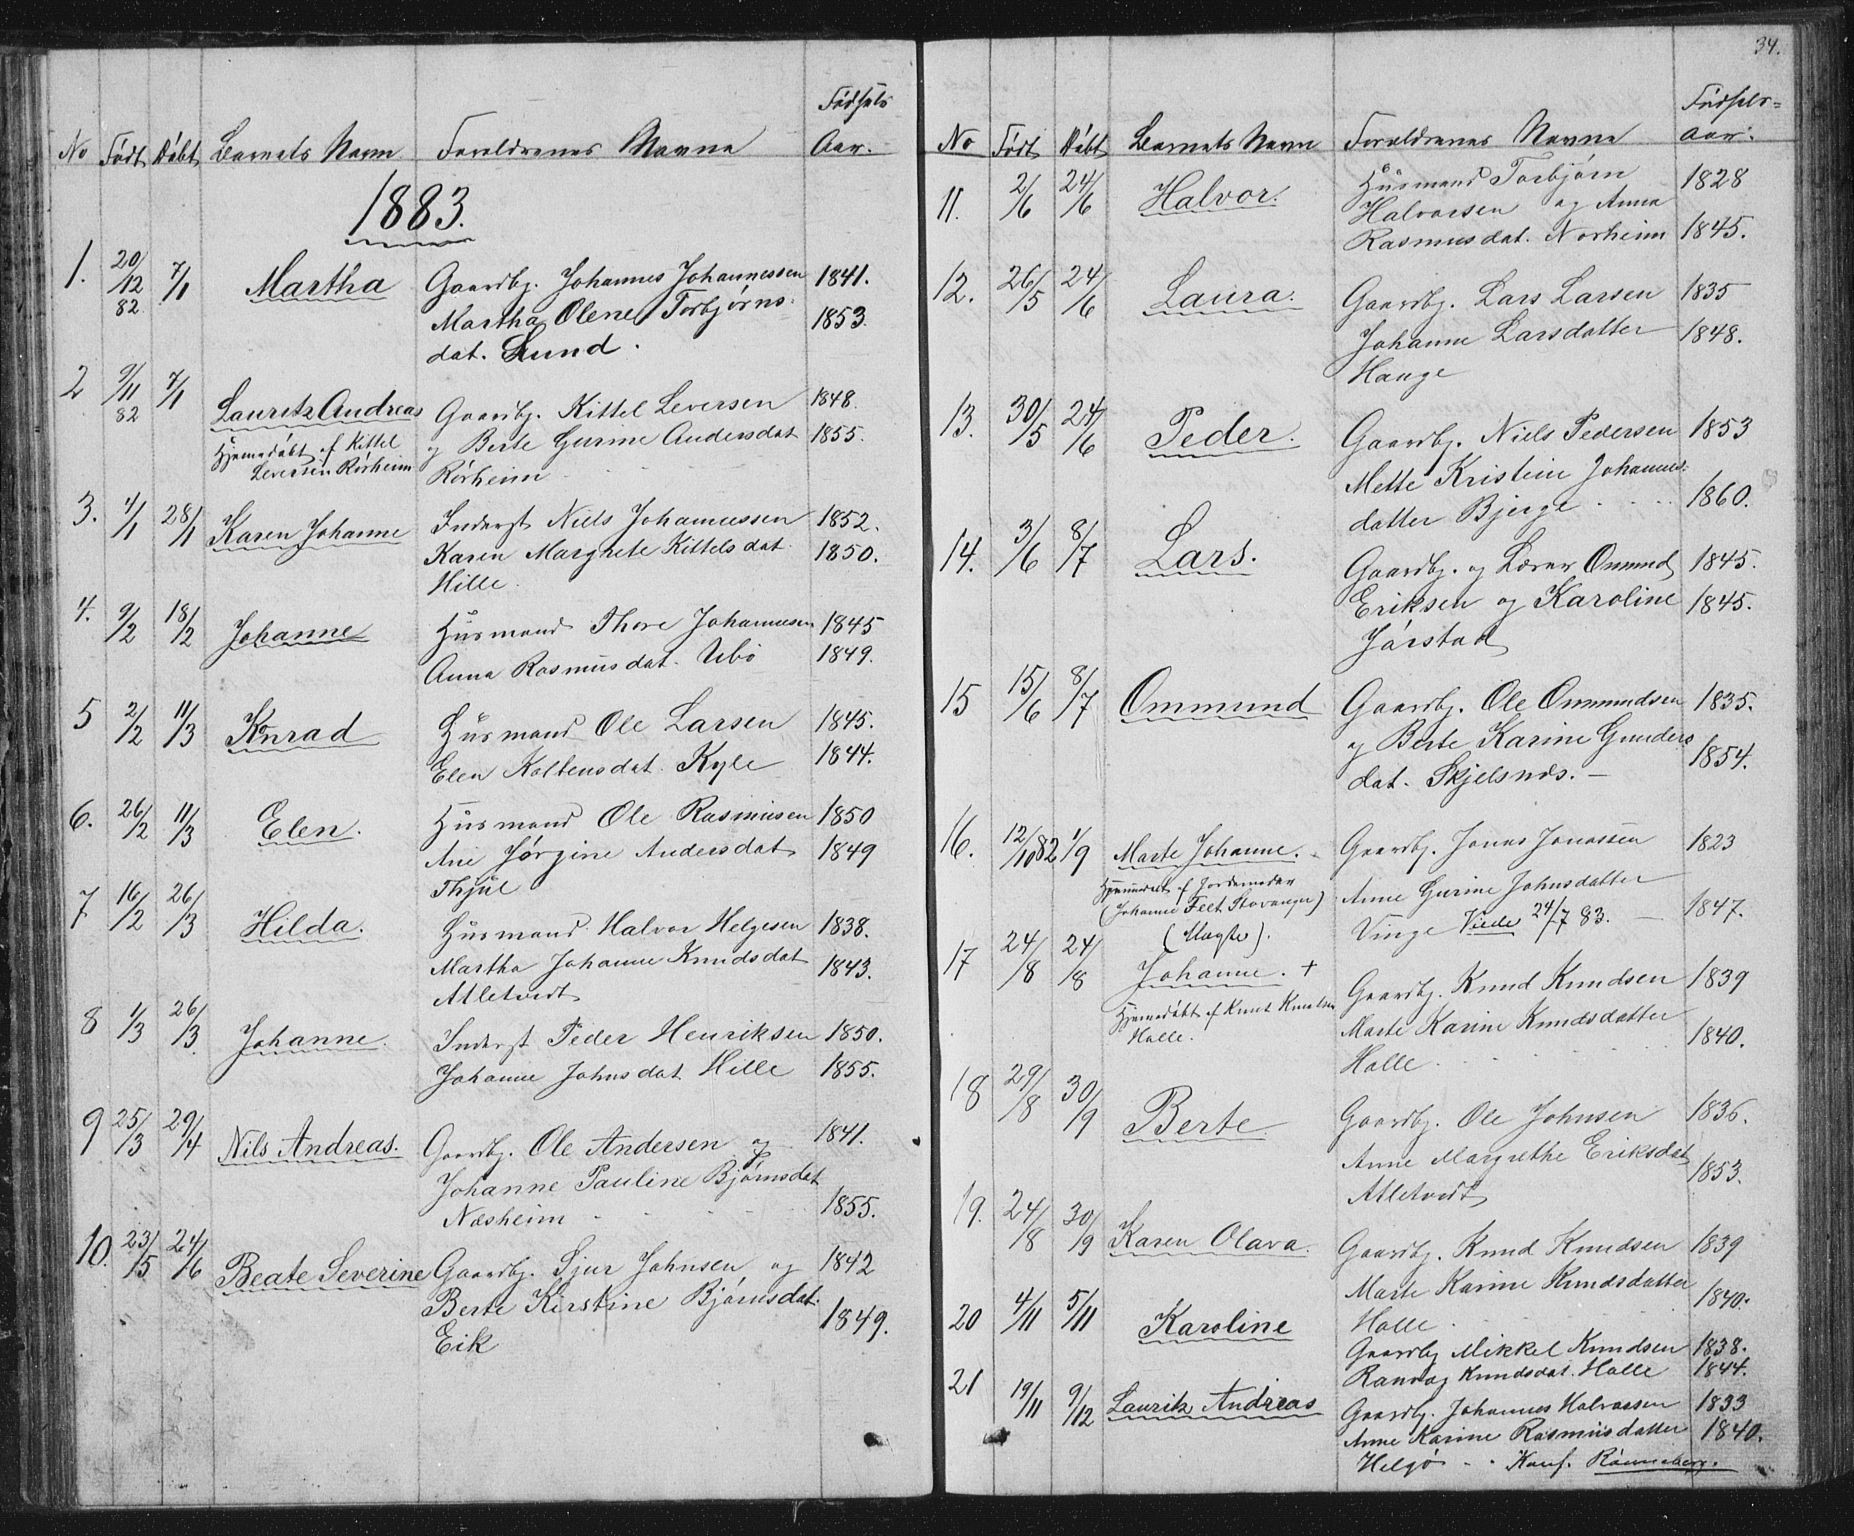 No Født Døbt Barnets Navn Foreldrenes Navne Fødsels Aar.
1883.
1. 20/12 82 7/1 Martha Gaardbg. Johannes Johannessen 1841.
Martha Olene Torbjørns- 1853.
dat. Lund.
2 9/11 82 7/1 Lauritz Andreas Gaardbg. Kittel Leversen 1848.
Hjemedøbt af Kittel og Berte Gurine Andersdat 1855.
Leversen Rørheim Rørheim
3. 4/1 28/1 Karen Johanne Inderst Niels Johannessen 1852.
Karen Margrete Kittelsdat. 1850.
Hille.
4. 9/2 18/2 Johanne Husmand Thore Johannesen 1845
Anna Rasmusdat. Ubø 1849.
5 2/2 11/3 Konrad Husmand Ole Larsen 1845.
Elen Kolbensdat. Kyle 1844.
6. 26/2 11/3 Elen. Husmand Ole Rasmusen 1850
Ane Jørgine Andersdat 1849
Thjul
7 16/2 26/3 Hilda. Husmand Halvor Helgesen 1838.
Martha Johanne Knudsdat 1843.
Atletvedt
8 1/3 26/3 Johanne. Inderst Peder Henriksen 1850.
Johanne Johnsdat Hille 1855.
9 25/3 29/4 Nils Andreas. Gaardbg. Ole Andersen og 1841.
Johanne Pauline Bjørnsdat
Næsheim 1855.
10. 23/5 24/6 Beate Severine Gaardbg. Sjur Johnsen og 1842
Berte Kirstine Bjørnsdat. 1849.
Eik
34.
No Født Døbt Barnets Navn Foreldrenes Navne Fødsels- Aar.
11. 2/6 24/6 Halvor. Husmand Torbjørn 1828
Halvorsen og Anna
Rasmusdat. Norheim 1845.
12. 26/5 24/6 Laura. Gaardbg. Lars Larsen 1835
Johanne Larsdatter 1848.
Hauge
13. 30/5 24/6 Peder. Gaardbg. Niels Pedersen 1853
Mette Kristine Johannes-
datter Bjerge 1860.
14. 3/6 8/7 Lars. Gaardbg. og Lærer Ommund 1845.
Eriksen og Karoline 1845.
Jørstad
15 15/6 8/7 Ommund Gaardbg. Ole Ommundsen 1835.
og Berte Karine Gunders
dat. Skjelsnes. 1854.
16. 12/10 82 1/9 Marte Johanne. Gaardbg. Jonas Jonassen 1823
Hjemmedøbt af Jordemoder Anne Gurine Johnsdatter
(Johanne Felt. Stavanger) Vinge Viede 24/7 83. 1847.
(Uægte).
17 24/8 24/8 Johanne. + Gaardbg. Knud Knudsen 1839
Hjemedøbt af Knut Knutsen Marte Karine Knudsdatter
Halle. Halle. 1840.
18 29/8 30/9 Berte Gaardbg. Ole Johnsen 1836.
Anne Margrethe Eriksdat
Atletvedt 1853.
19. 24/8 30/9 Karen Olava. Gaardbg. Knud Knudsen 1839
Marte Karine Knudsdatter
Halle. 1840.
20 4/11 5/11 Karoline Gaardbg Mikkel Knudsen 1838.
Ranvog Knudsdat. Halle 1844.
21 19/11 9/12 Laurik Andreas Gaardbg. Johannes Halvorsen 1833
Anne Karine Rasmusdatter 1840.
Helgø - . Konf. Rønneberg.